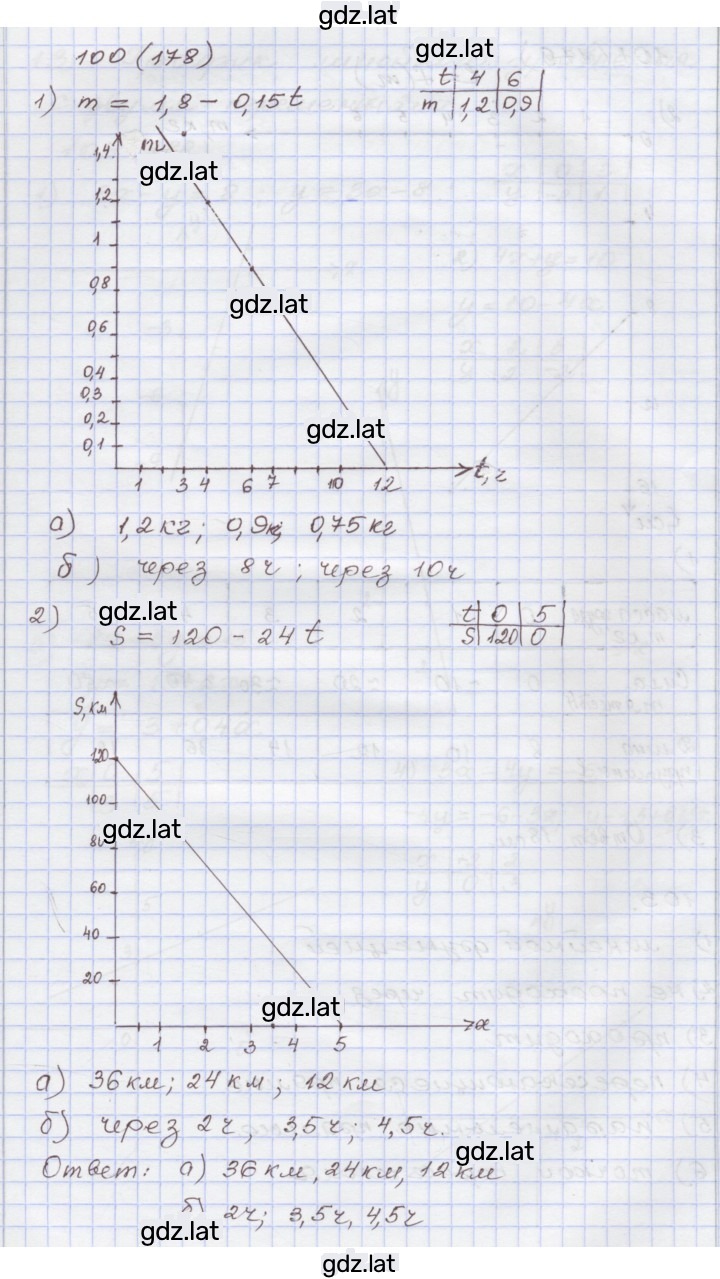 gdz.lat
100 (178)
gdz.lat
1) m = 1,8 - 0,15t
t 4 6
m 1,2 0,9
m
1,4
gdz.lat
1,2
1
0,8
gdz.lat
0,6
0,4
0,3
0,2
gdz.lat
0,1
1 3 4 6 7 10 12 t, г
а) 1,2 кг; 0,9к; 0,75 кг
б) через 8ч; через 10ч
2) gdz.lat
S = 120 - 24t
t 0 5
S 120 0
S, км
120
100
gdz.lat
80
60
40
20
gdz.lat
1 2 3 4 5 x
а) 36 км; 24 км; 12 км
б) через 2ч; 3,5ч; 4,5ч.
gdz.lat
Ответ: а) 36 км, 24 км, 12 км
б) 2ч; 3,5ч, 4,5ч
gdz.lat
gdz.lat